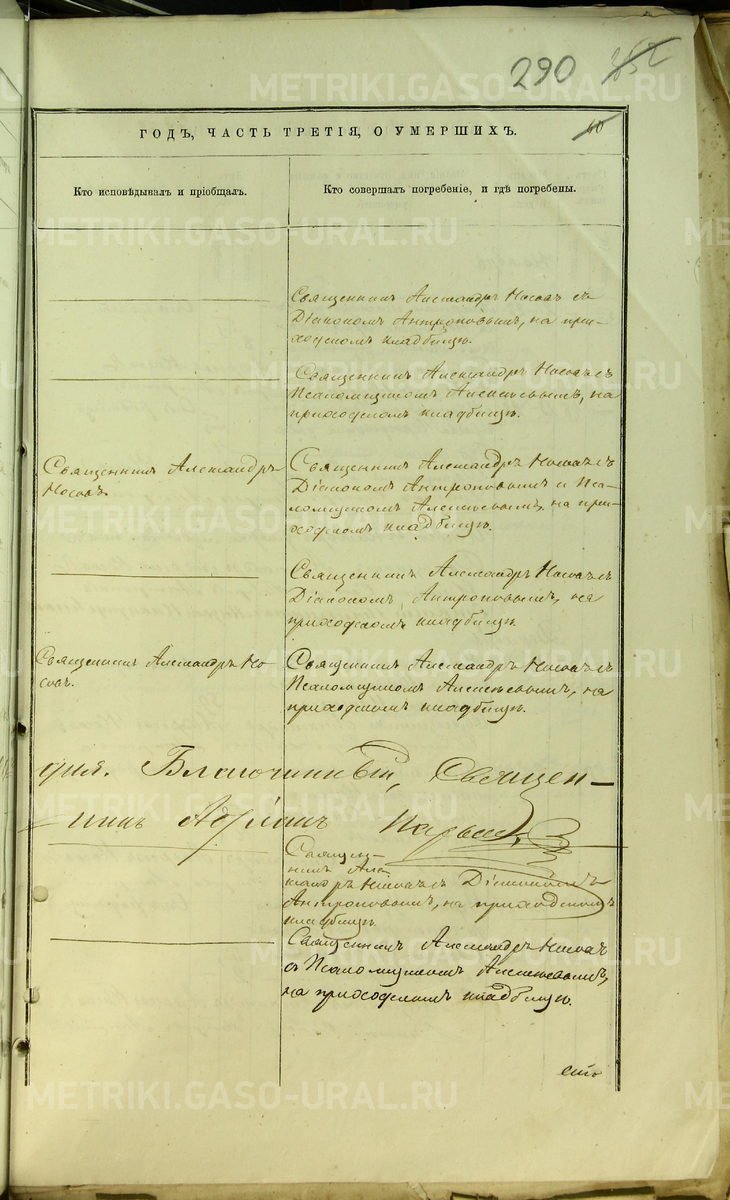 290 252
ГОДЪ, ЧАСТЬ ТРЕТІЯ, О УМЕРШИХЪ.
60
Кто исповѣдывалъ и пріобщалъ.
Кто совершалъ погребеніе, и гдѣ погребены.
Священникъ Александръ Носовъ съ
Діакономъ Антроповымъ, на при-
ходскомъ кладбищѣ.
Священникъ Александръ Носовъ съ
Псаломщикомъ Алексѣевымъ, на
приходскомъ кладбищѣ.
Священникъ Александръ
Носовъ.
Священникъ Александръ Носовъ съ
Діакономъ Антроповымъ и Пса-
ломщикомъ Алексѣевымъ, на при-
ходскомъ кладбищѣ.
Священникъ Александръ Носовъ съ
Діакономъ Антроповымъ, на
приходскомъ кладбищѣ.
Священникъ Александръ Но-
совъ.
Священникъ Александръ Носовъ съ
Псаломщикомъ Алексѣевымъ, на
приходскомъ кладбищѣ.
дня. Благочинный, Священ-
никъ Адріанъ
Священ-
никъ Алек-
сандръ Носовъ съ Діакономъ
Антроповымъ, на приходскомъ
кладбищѣ.
Священникъ Александръ Носовъ
съ Псаломщикомъ Алексѣевымъ,
на приходскомъ кладбищѣ.
METRIKI.GASO-URAL.RU